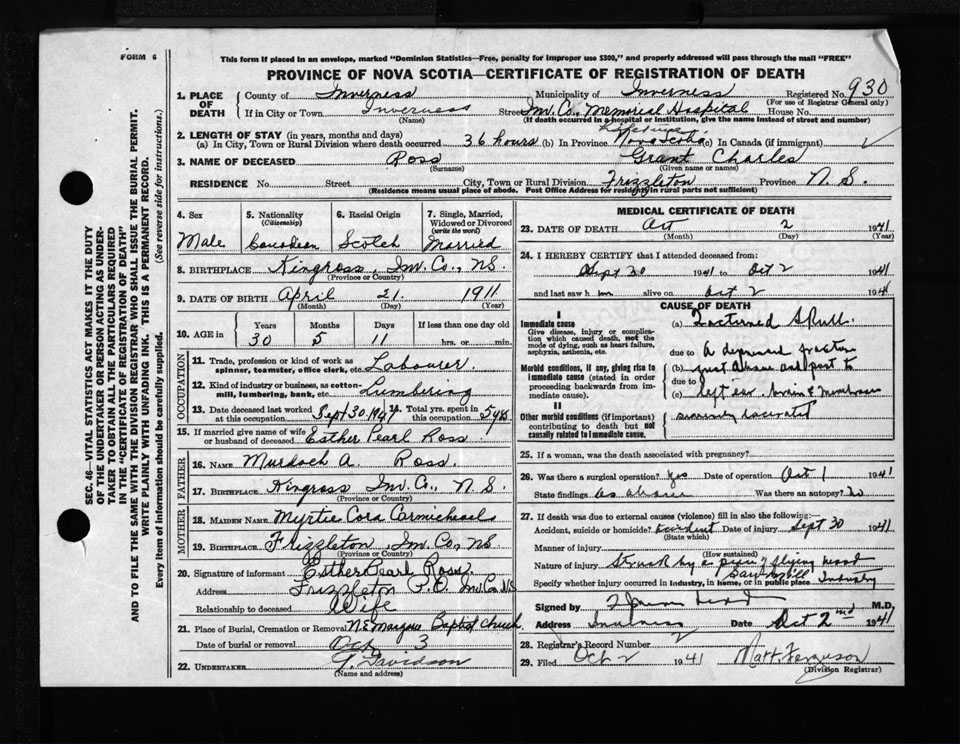 FORM 6
This form if placed in an envelope, marked "Dominion Statistics—Free, penalty for improper use $300," and properly addressed will pass through the mail "FREE"
PROVINCE OF NOVA SCOTIA—CERTIFICATE OF REGISTRATION OF DEATH
1. PLACE OF DEATH
County of Inverness Municipality of Inverness Registered No. 930
(For use of Registrar General only)
If in City or Town Inverness Street Inv. Co. Memorial Hospital House No.
(Name) (If death occurred in a hospital or institution, give the name instead of street and number)
2. LENGTH OF STAY (in years, months and days)
Lifetime
(a) In City, Town or Rural Division where death occurred 36 hours (b) In Province Nova Scotia (c) In Canada (if immigrant)
3. NAME OF DECEASED Ross Grant Charles
(Surname) (Given name or names)
RESIDENCE No. Street City, Town or Rural Division Frizzleton Province N. S.
(Residence means usual place of abode. Post Office Address for residents in rural parts not sufficient)
4. Sex
Male
5. Nationality
(Citizenship)
Canadian
6. Racial Origin
Scotch
7. Single, Married, Widowed or Divorced
(write the word)
Married
8. BIRTHPLACE Kingross, Inv. Co., NS.
(Province or Country)
9. DATE OF BIRTH April 21. 1911
(Month) (Day) (Year)
10. AGE in Years Months Days If less than one day old
30 5 11 hrs. or min.
OCCUPATION
11. Trade, profession or kind of work as spinner, teamster, office clerk, etc. Labourer
12. Kind of industry or business, as cotton-mill, lumbering, bank, etc. Lumbering
13. Date deceased last worked at this occupation Sept 30, 1941 14. Total yrs. spent in this occupation 5 yrs.
15. If married give name of wife or husband of deceased Esther Pearl Ross.
FATHER
16. NAME Murdoch A. Ross.
17. BIRTHPLACE Kingross Inv. Co., N. S.
(Province or Country)
MOTHER
18. MAIDEN NAME Myrtie Cora Carmichael
19. BIRTHPLACE Frizzleton, Inv. Co., NS
(Province or Country)
20. Signature of informant Esther Pearl Ross
Address Frizzleton P.O. Inv. Co. NS
Relationship to deceased Wife
21. Place of Burial, Cremation or Removal N.E. Margaree Baptist Church
Date of burial or removal Oct 3
22. UNDERTAKER Davidson
(Name and address)
MEDICAL CERTIFICATE OF DEATH
23. DATE OF DEATH Oct 2 1941
(Month) (Day) (Year)
24. I HEREBY CERTIFY that I attended deceased from:
Sept 30 1941 to Oct 2 1941
and last saw h im alive on Oct 2 1941
CAUSE OF DEATH
I
Immediate cause
Give disease, injury or complication which caused death, not the mode of dying, such as heart failure, asphyxia, asthenia, etc.
(a) Fractured Skull.
due to A depressed fracture
Morbid conditions, if any, giving rise to immediate cause (stated in order proceeding backwards from immediate cause).
(b) just above and post to
due to
(c) left ear. brain & membranes
II
Other morbid conditions (if important) contributing to death but not causally related to immediate cause.
severely lacerated
25. If a woman, was the death associated with pregnancy?
26. Was there a surgical operation? Yes Date of operation Oct 1 1941
State findings as above Was there an autopsy? No
27. If death was due to external causes (violence) fill in also the following:
Accident, suicide or homicide? Accident Date of injury Sept 30 1941
(State which)
Manner of injury
(How sustained)
Nature of injury Struck by a piece of flying wood
sawmill
Specify whether injury occurred in industry, in home, or in public place Industry
Signed by M.D.
Address Inverness Date Oct 2nd 1941
28. Registrar's Record Number 2
29. Filed Oct 2 1941 Matt. Ferguson
(Division Registrar)
SEC. 46—VITAL STATISTICS ACT MAKES IT THE DUTY OF THE UNDERTAKER OR PERSON ACTING AS UNDERTAKER TO OBTAIN ALL THE PARTICULARS REQUIRED IN THE "CERTIFICATE OF REGISTRATION OF DEATH" AND TO FILE THE SAME WITH THE DIVISION REGISTRAR WHO SHALL ISSUE THE BURIAL PERMIT.
WRITE PLAINLY WITH UNFADING INK. THIS IS A PERMANENT RECORD.
Every item of information should be carefully supplied. (See reverse side for instructions.)